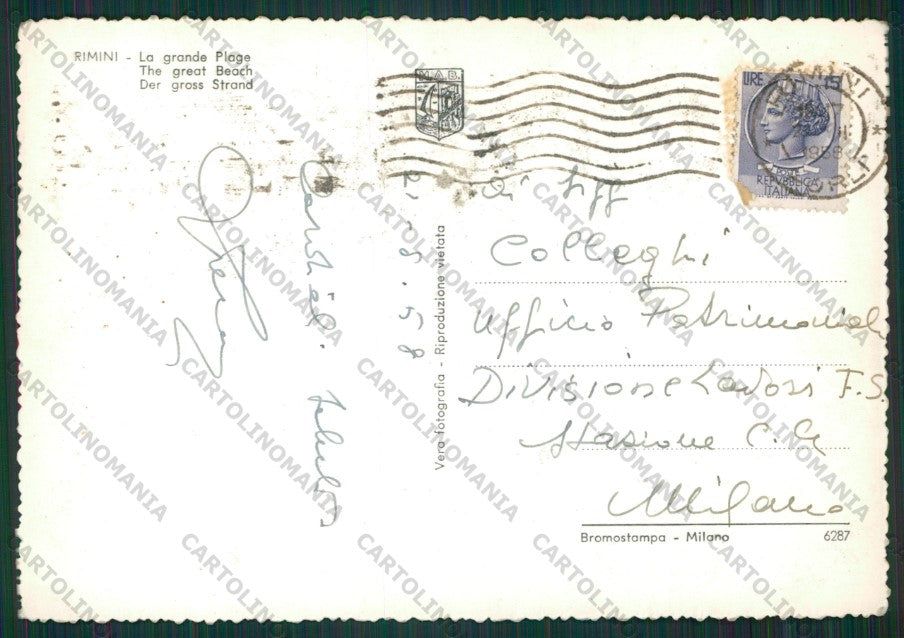 RIMINI - La grande Plage
The great Beach
Der gross Strand
M.A.B.
LIRE 15
REPUBBLICA
ITALIANA
1958
Cordiali saluti
2.8.58
Vera fotografia - Riproduzione vietata
Colleghi
Ufficio Patrimoniale
Divisione Lavori F.S.
Stazione C.le
Milano
Bromostampa - Milano 6287
CARTOLINOMANIA